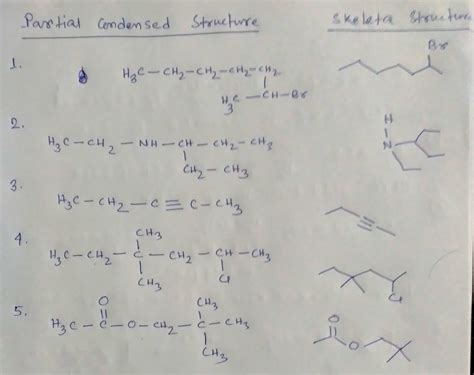 Partial Condensed Structure
Skeletra Structure
1.
H₃C – CH₂ – CH₂ – CH₂ – CH₂
H₃C – CH – Br
Br
2.
H₃C – CH₂ – NH – CH – CH₂ – CH₃
CH₂ – CH₃
H
N
3.
H₃C – CH₂ – C ≡ C – CH₃
4.
CH₃
H₃C – CH₂ – C – CH₂ – CH – CH₃
CH₃ Cl
Cl
5.
O CH₃
H₃C – C – O – CH₂ – C – CH₃
CH₃
O
O